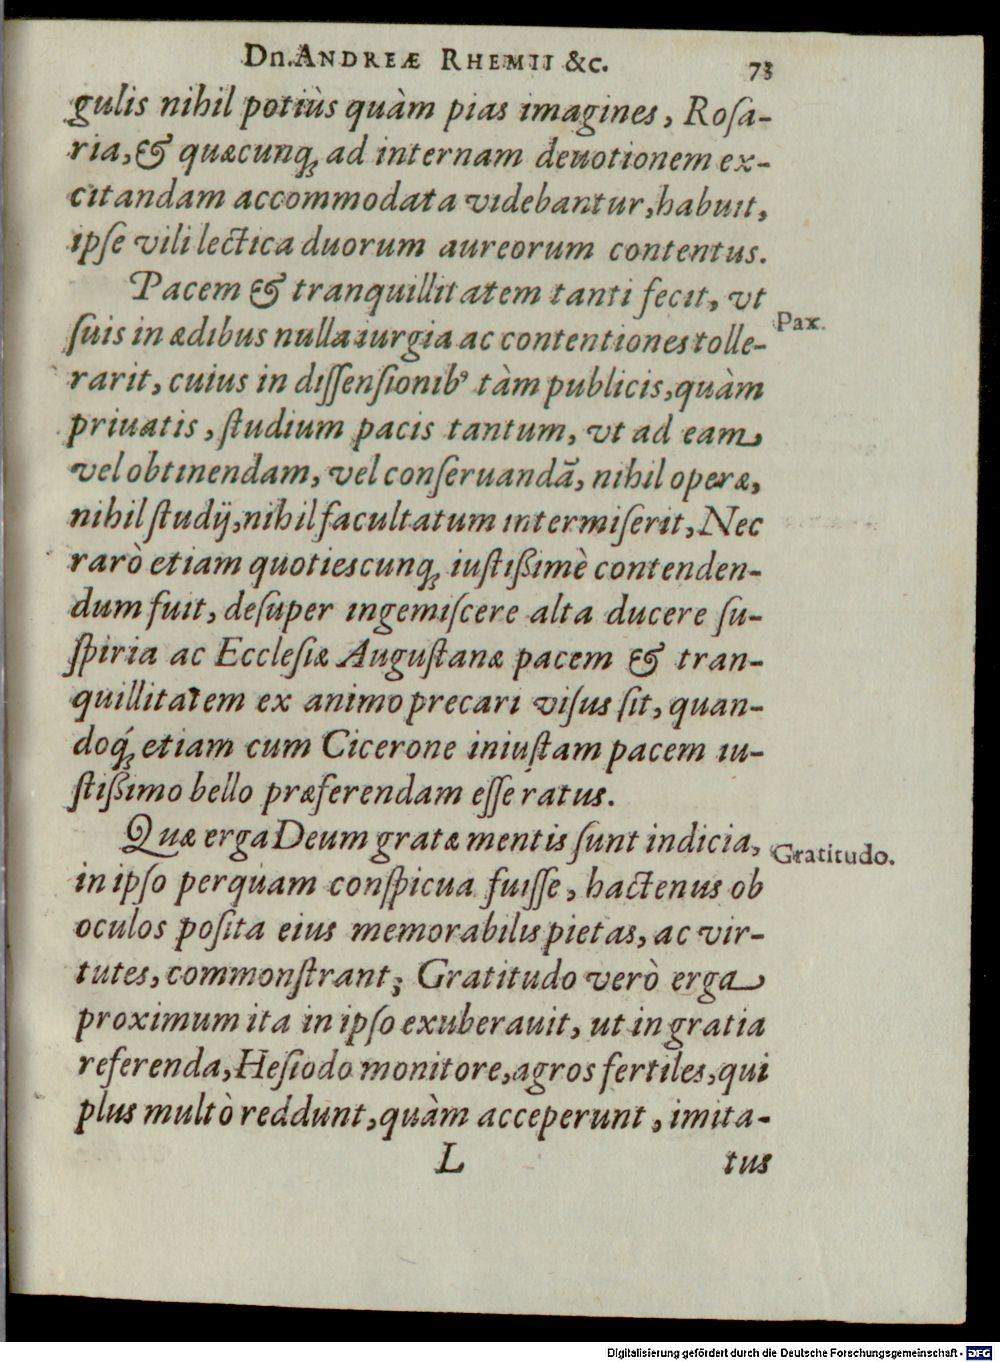 Dn. ANDREÆ RHEMII &c. 73
gulis nihil potiùs quàm pias imagines, Roſa-
ria, & quæcunqꝫ ad internam deuotionem ex-
citandam accommodata videbantur, habuit,
ipſe vili lectica duorum aureorum contentus.
Pacem & tranquillitatem tanti fecit, vt
Pax.
ſuis in ædibus nulla iurgia ac contentiones tolle-
rarit, cuius in diſſenſionibꝰ tàm publicis, quàm
priuatis, ſtudium pacis tantum, vt ad eam
vel obtinendam, vel conſeruandā, nihil operæ,
nihil ſtudij, nihil facultatum intermiſerit, Nec
rarò etiam quotiescunqꝫ iuſtißimè contenden-
dum fuit, deſuper ingemiſcere alta ducere ſu-
ſpiria ac Eccleſiæ Auguſtanæ pacem & tran-
quillitatem ex animo precari viſus ſit, quan-
doqꝫ́ etiam cum Cicerone iniuſtam pacem iu-
ſtißimo bello præferendam eſſe ratus.
Quæ erga Deum gratæ mentis ſunt indicia,
Gratitudo.
in ipſo perquam conſpicua fuiſſe, hactenus ob
oculos poſita eius memorabilis pietas, ac vir-
tutes, commonſtrant; Gratitudo verò erga
proximum ita in ipſo exuberauit, ut in gratia
referenda, Heſiodo monitore, agros fertiles, qui
plus multò reddunt, quàm acceperunt, imita-
L tus
Digitalisierung gefördert durch die Deutsche Forschungsgemeinschaft - DFG